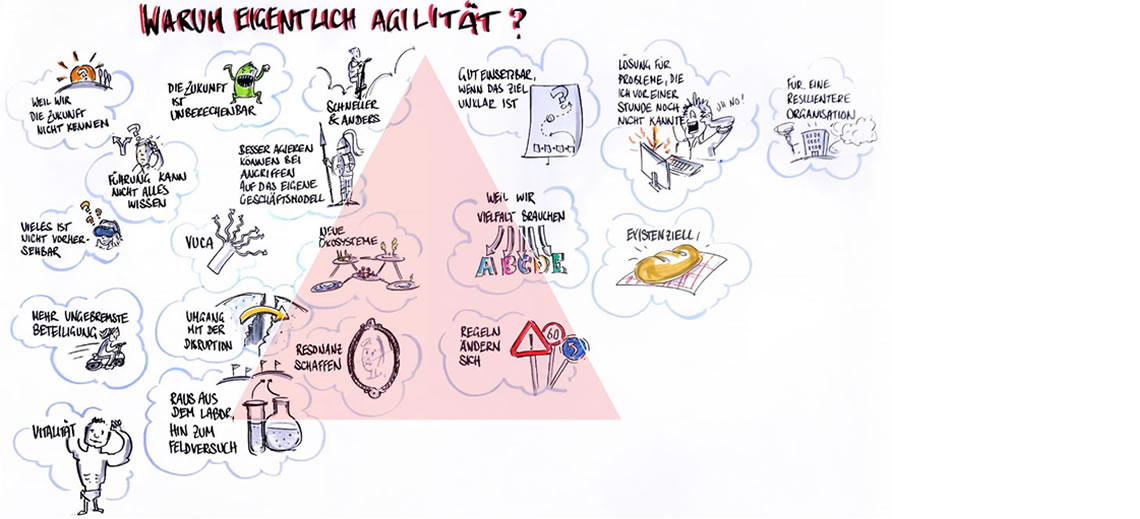 WARUM EIGENTLICH AGILITÄT?
WEIL WIR
DIE ZUKUNFT
NICHT KENNEN
DIE ZUKUNFT
IST
UNBERECHENBAR
SCHNELLER
& ANDERS
GUT EINSETZBAR,
WENN DAS ZIEL
UNKLAR IST
LÖSUNG FÜR
PROBLEME, DIE
ICH VOR EINER
STUNDE NOCH
NICHT KANNTE
UH NO!
FÜR EINE
RESILIENTERE
ORGANISATION
FÜHRUNG KANN
NICHT ALLES
WISSEN
BESSER AGIEREN
KÖNNEN BEI
ANGRIFFEN
AUF DAS EIGENE
GESCHÄFTSMODELL
VIELES IST
NICHT VORHER-
SEHBAR
VUCA
NEUE
ÖKOSYSTEME
WEIL WIR
VIELFALT BRAUCHEN
ABCDE
EXISTENZIELL!
MEHR UNGEBREMSTE
BETEILIGUNG
UMGANG
MIT DER
DISRUPTION
RESONANZ
SCHAFFEN
REGELN
ÄNDERN
SICH
60
VITALITÄT
RAUS AUS
DEM LABOR,
HIN ZUM
FELDVERSUCH